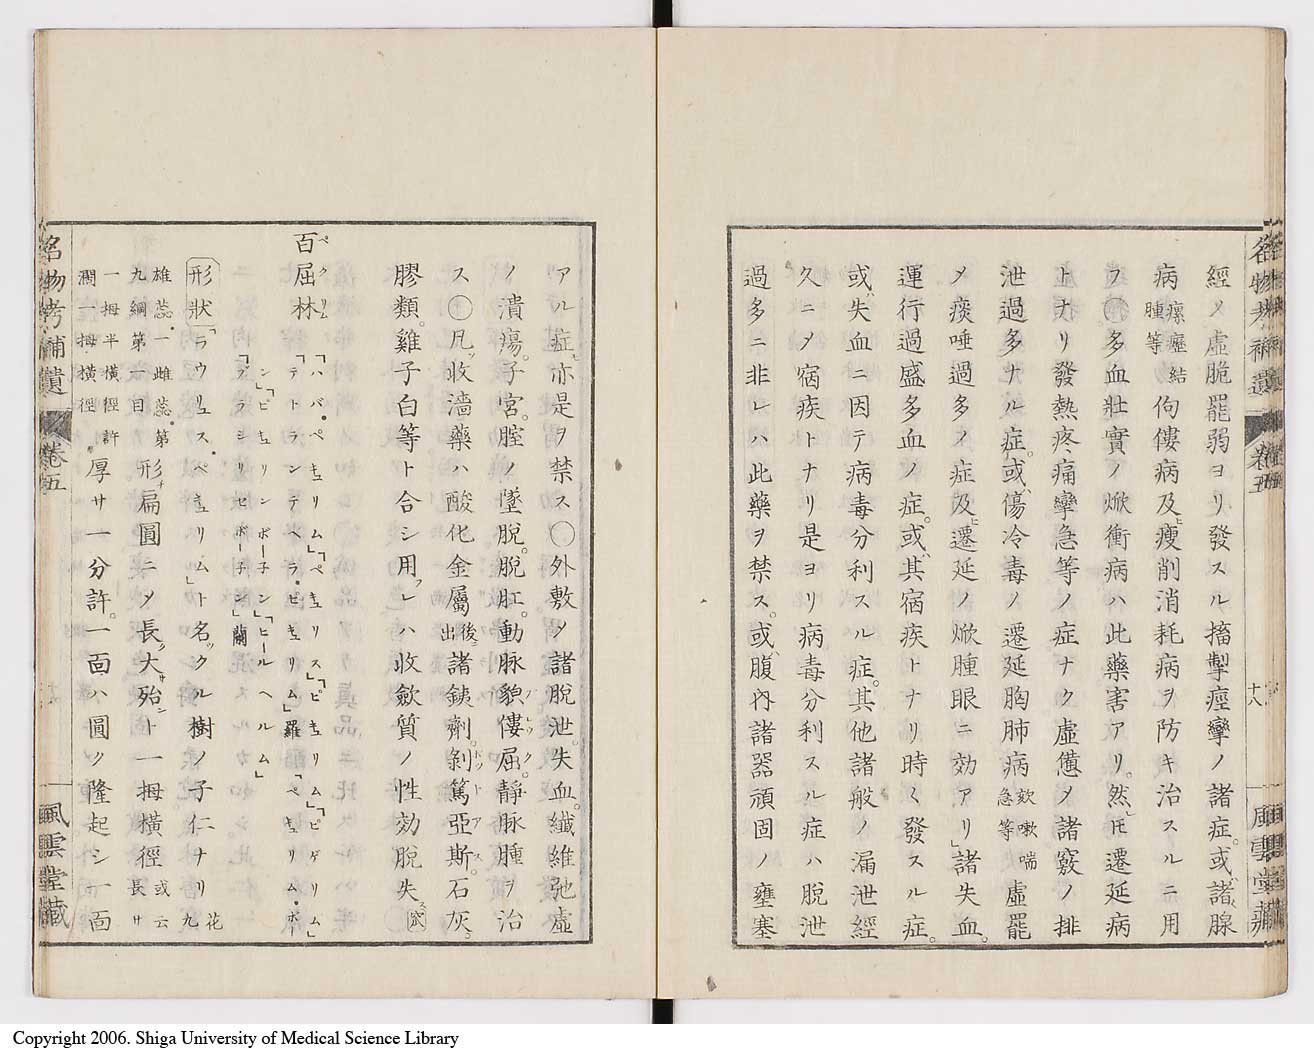 名物考補遺 卷五 十八 風雲堂藏
經〆虛脆罷弱ヨリ發スル搐掣痙攣ノ諸症。或ハ諸腺
病瘰癧結腫等佝僂病及ヒ瘦削消耗病ヲ防キ治スルニ用
フ○多血壯實ノ焮衝病ハ此藥害アリ。然𪜈遷延病
トナリ發熱疼痛攣急等ノ症ナク虛憊〆諸竅ノ排
泄過多ナル症。或ハ傷冷毒ノ遷延胸肺病欬嗽喘急等虛罷
〆痰唾過多ノ症及ヒ遷延ノ焮腫眼ニ効アリ」諸失血。
運行過盛多血ノ症。或ハ其宿疾トナリ時々發スル症。
或ハ失血ニ因テ病毒分利スル症。其他諸般ノ漏泄經
久ニ〆宿疾トナリ是ヨリ病毒分利スル症ハ脫泄
過多ニ非レハ此藥ヲ禁ス。或ハ腹內諸器頑固ノ壅塞
アル症ヒ亦是ヲ禁ス○外敷〆諸脫泄。失血。纎維弛虛
ノ潰瘍。子宮。腟ノ墜脫。脫肛。動脉䫉僂屈。靜脉腫ヲ治
ス○凡ソ收濇藥ハ酸化金屬後ニ出諸銕劑。剝篤亞斯。石灰。
膠類。雞子白等ト合シ用フレハ收斂質ノ性効脫失ス
百屈林 ペクリム
「ハバ・ペキュリム」「ペキュリス」「ピキュリム」「ピゲリム」
「テトランテペラ・ピキュリム」羅「ペキュリム・ボー
ン」「ピキュリンボー子ン」「ヒールヘルム」
「ブラシリセボー子ン」蘭
形狀「ラウリュス・ペキュリム」ト名ツクル樹ノ子仁ナリ花九
雄蕊・一雌蕊・第九綱第一目形チ扁圓ニ〆長大サ殆ント一拇橫徑或云長サ
一拇半橫徑許濶一拇橫徑厚サ一分許。一面ハ圓ク隆起シ一面
名物考補遺 卷五 風雲堂藏
Copyright 2006. Shiga University of Medical Science Library